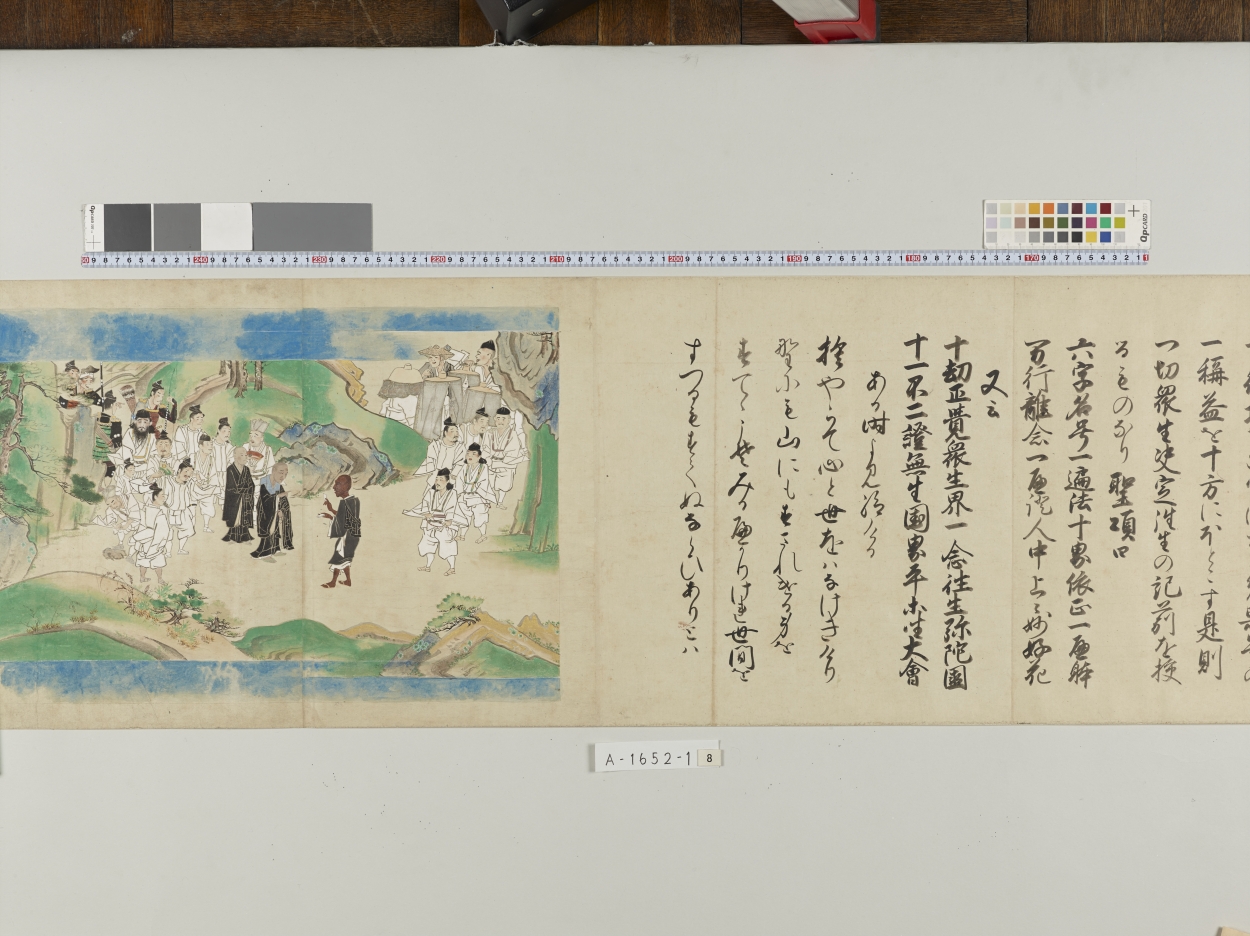 一稱益を十方にほとこす是則
一切衆生决定往生の記莂を授
るものなり 聖頌曰
六字名号一遍法十界依正一遍躰
万行離念一遍證人中上々妙好花
又云
十劫正覺衆生界一念往生弥陀國
十一不二證無生國界平等坐大會
ある時よみ給ける
捨やらて心と世をはなけきけり
野にも山にもすまれける身を
すてゝこそみるへかりけれ世間を
すつるもすてぬならひありとは
A-1652-1 8